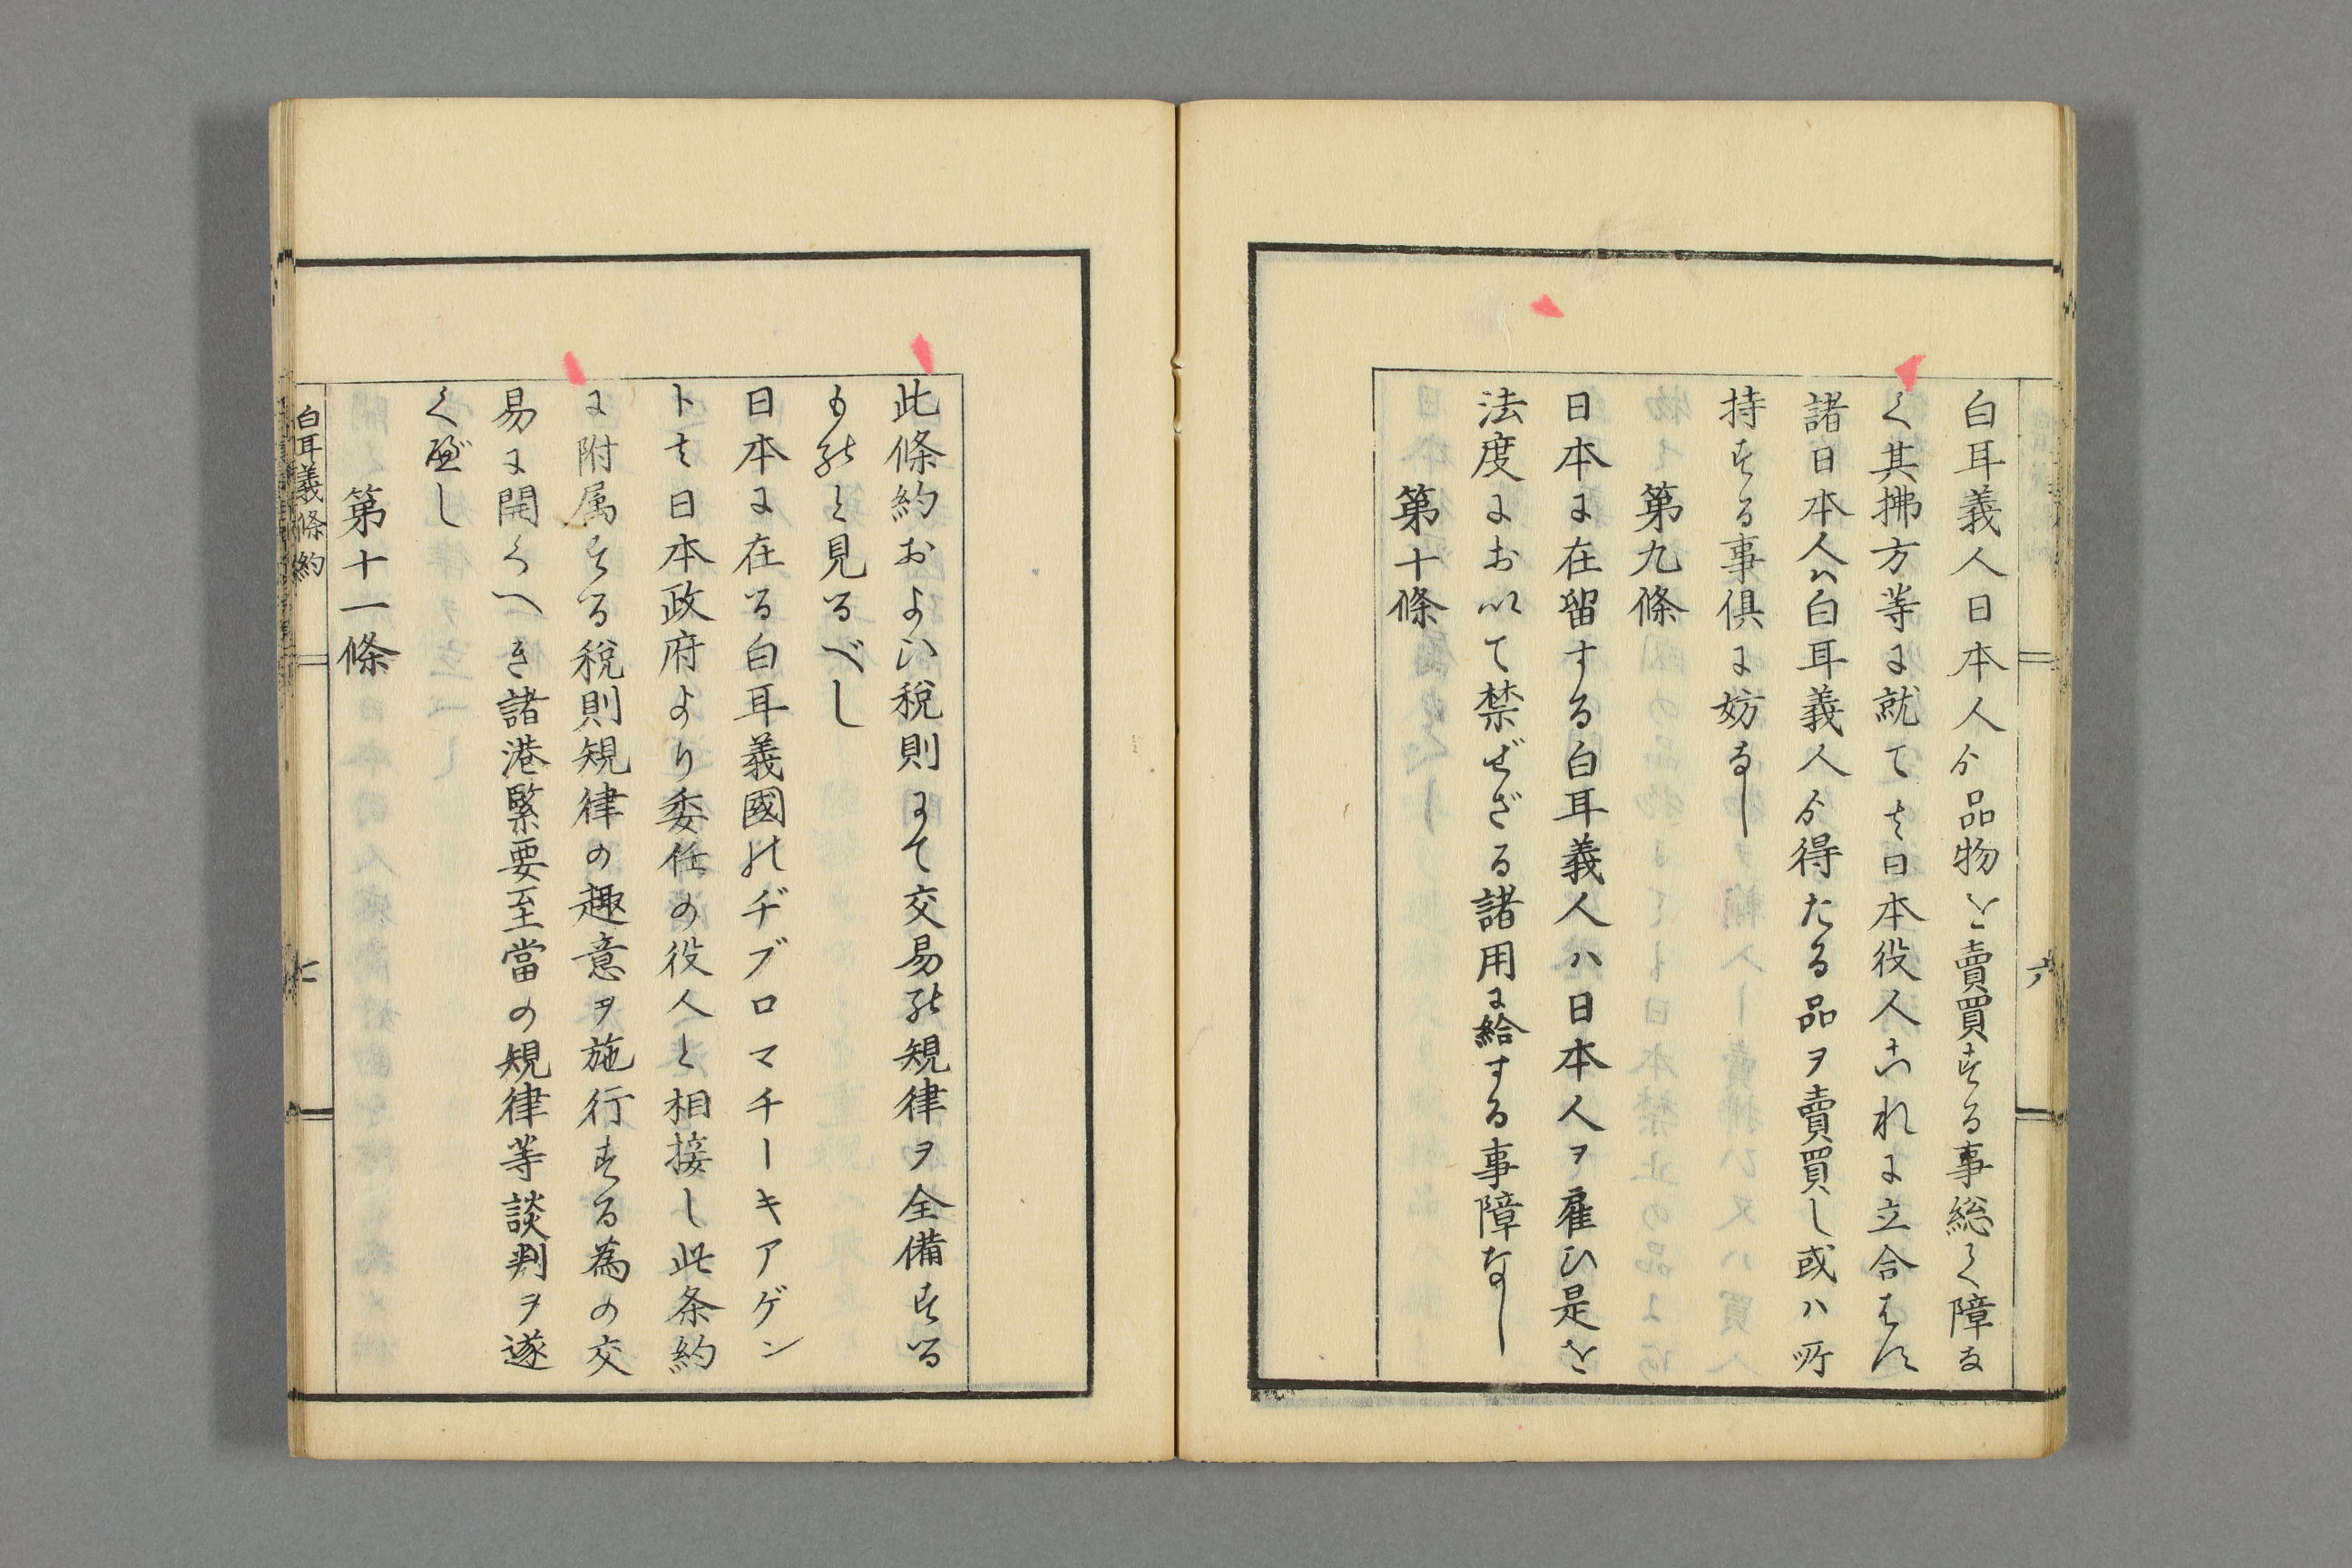 白耳義人日本人ゟ品物を賣買する事総く障な
く其拂方等に就ては日本役人これに立合はす
諸日本人ハ白耳義人ゟ得たる品ヲ賣買し或ハ所
持する事倶に妨なし
第九條
日本に在留する白耳義人ハ日本人ヲ雇ひ是を
法度において禁ぜざる諸用に給する事障なし
第十條
六
此條約およひ税則にて交易の規律ヲ全備する
ものと見るべし
日本に在る白耳義國のヂブロマチーキアゲン
トは日本政府より委任の役人と相接し此条約
に附属する税則規律の趣意ヲ施行する為の交
易に開くへき諸港緊要至當の規律等談判ヲ遂
く遍し
第十一條
白耳義條約
七